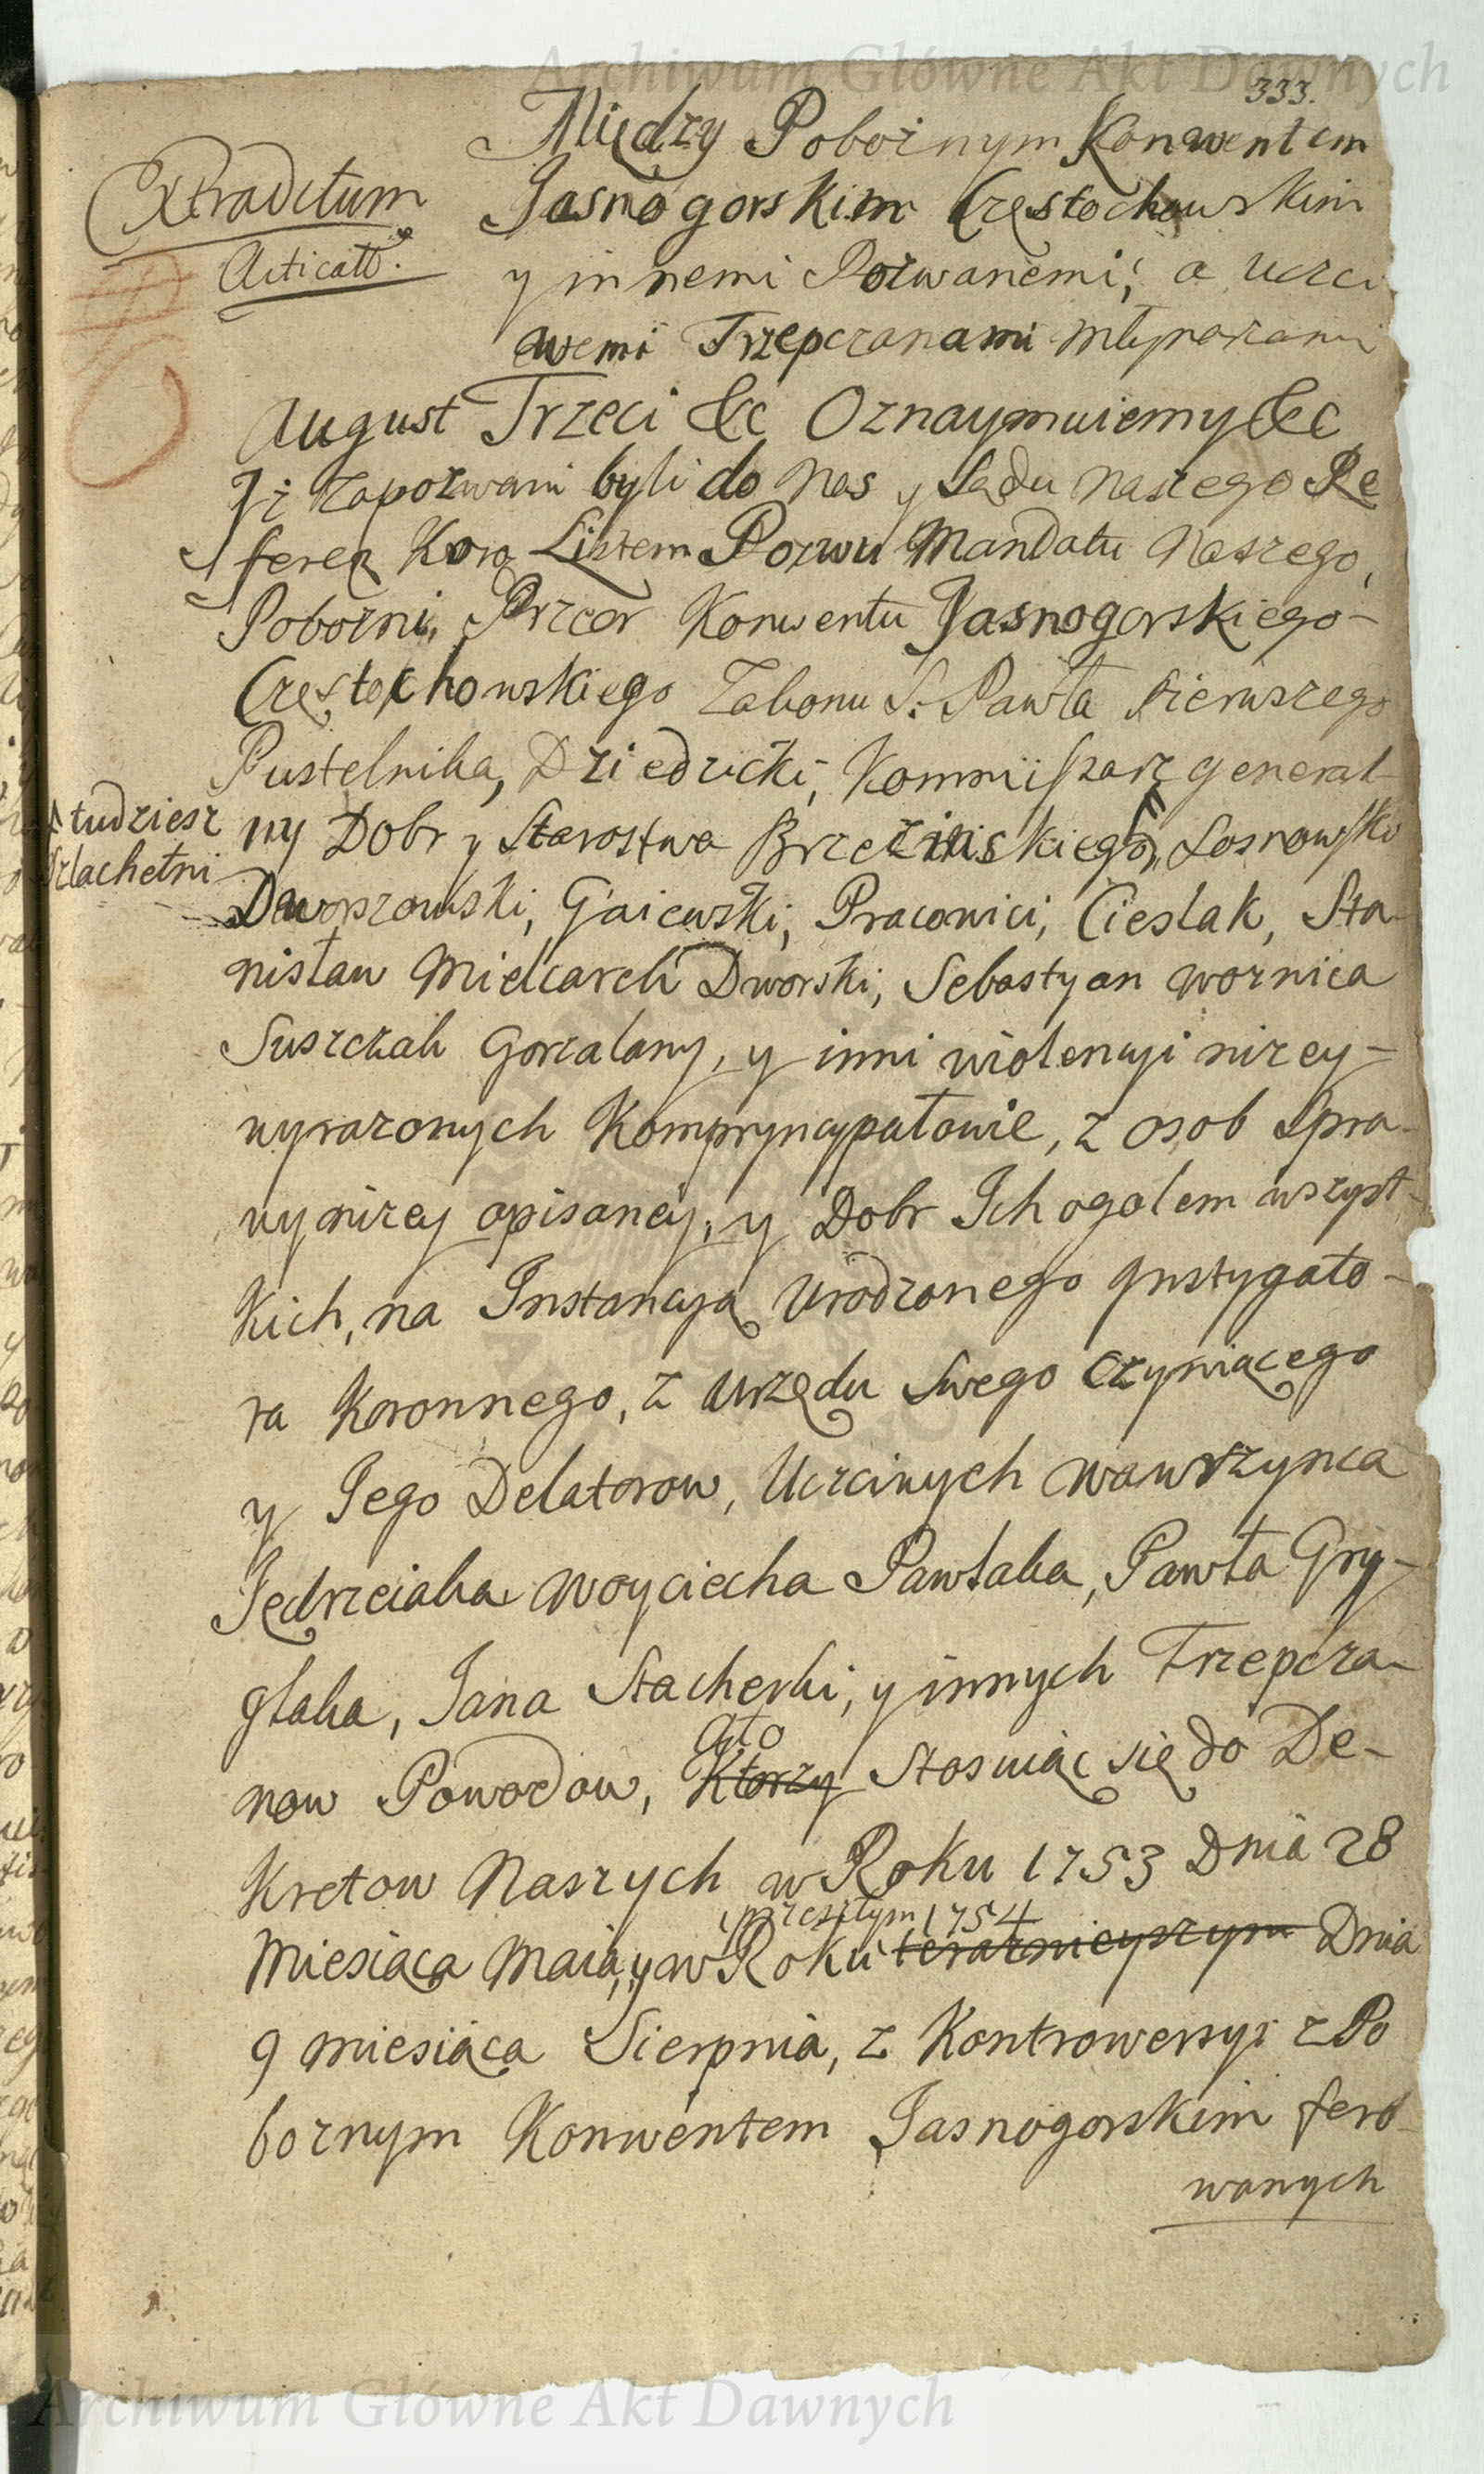 Archiwum Główne Akt Dawnych
333.
Między Pobożnym Konwentem
Jasnogorskim Częstochowskim
y innemi Pozwanemi; a Uczci
wemi Trzepczanami Młynarzami
Extraditum
Acticatt.
August Trzeci &c Oznaymuiemy &c
Jż Zapozwani byli do Nas y Sądu Naszego Re
feren Koro Listem Pozwu Mandatu Naszego,
Pobożni, Przeor Konwentu Jasnogorskiego
Częstochowskiego Zakonu S. Pawła Pierwszego
Pustelnika, Dziedzicki, Kommissarz general
ny Dobr y Starostwa Brzezinskiego, Sosnowski
tudziesz
Szlachetni
Dworszowski, Gaiewski, Pracowici, Cieslak, Sta-
nisław Mielcarek Dworski, Sebastyan woznica
Suszczak Gorzalany, y inni wiolencyi niżey-
wyrażonych Kompryncypałowie, z osob Spra-
wy niżey opisaney, y Dobr Ich ogolem wszyst-
kich, na Instancyą Urodzonego Instygato-
ra Koronnego, z Urzędu Swego czyniącego
y Jego Delatorow, Uczciwych Wawrzynca
Jędrzeiaka Woyciecha Pawłaka, Pawła Gry-
glaka, Jana Stacherki, y innych Trzepcza-
now Powodow, Ktorzy Stosuiąc się do De-
ato
Kretow Naszych w Roku 1753 Dnia 28
Miesiąca Maia, y w Roku teraznieyszym Dnia
przeszłym 1754
9 miesiąca Sierpnia, z Kontrowersyi z Po
bożnym Konwentem Jasnogorskim fero-
wanych
Archiwum Główne Akt Dawnych